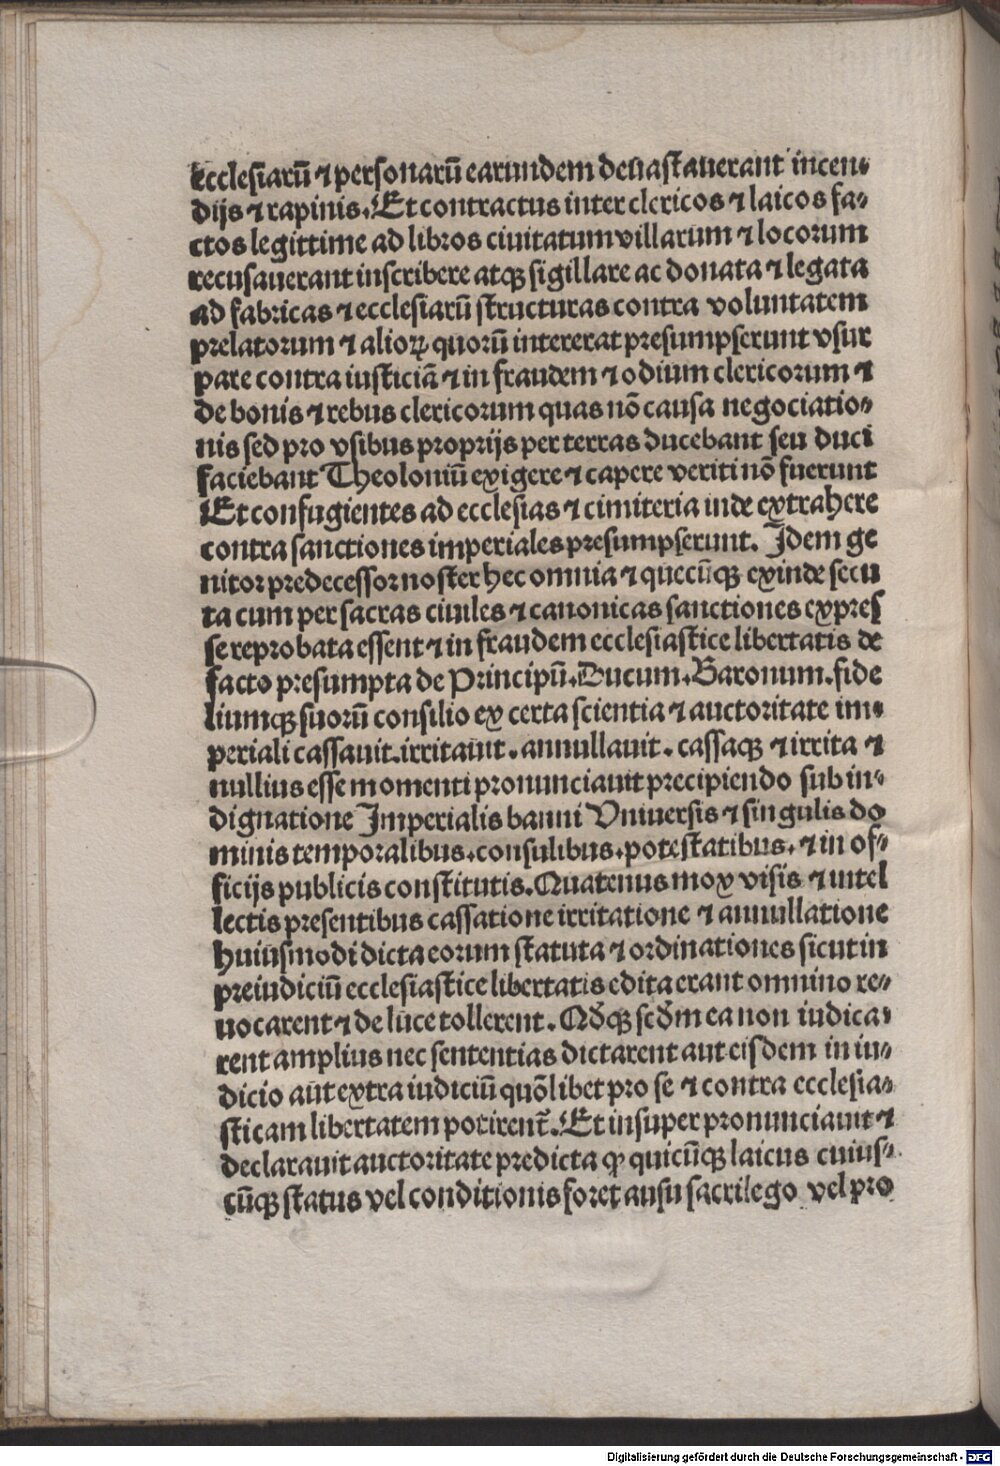 ecclesiarū ⁊ personarū earundem deuastauerant incen⸗
dijs ⁊ rapinis. Et contractus inter clericos ⁊ laicos fa⸗
ctos legittime ad libros ciuitatum villarum ⁊ locorum
recusauerant inscribere atqꝫ sigillare ac donata ⁊ legata
ad fabricas ⁊ ecclesiarū structuras contra voluntatem
prelatorum ⁊ alioꝝ quorū intererat presumpserunt vsur
pare contra iusticiā ⁊ in fraudem ⁊ odium clericorum ⁊
de bonis ⁊ rebus clericorum quas nō causa negociatio⸗
nis sed pro vsibus proprijs per terras ducebant seu duci
faciebant Theoloniū exigere ⁊ capere veriti nō fuerunt
Et confugientes ad ecclesias ⁊ cimiteria inde extrahere
contra sanctiones imperiales presumpserunt. Idem ge
nitor predecessor noster hec omnia ⁊ quecūqꝫ exinde secu
ta cum per sacras ciuiles ⁊ canonicas sanctiones expres
se reprobata essent ⁊ in fraudem ecclesiastice libertatis de
facto presumpta de Principū. Ducum. Baronum. fide
liumqꝫ suorū consilio ex certa scientia ⁊ auctoritate im⸗
periali cassauit. irritauit. annullauit. cassaqꝫ ⁊ irrita ⁊
nullius esse momenti pronunciauit precipiendo sub in⸗
dignatione Imperialis banni Vniuersis ⁊ singulis do
minis temporalibus. consulibus. potestatibus. ⁊ in of⸗
ficijs publicis constitutis. Quatenus mox visis ⁊ intel
lectis presentibus cassatione irritatione ⁊ annullatione
huiusmodi dicta eorum statuta ⁊ ordinationes sicut in
preiudiciū ecclesiastice libertatis edita erant omnino re⸗
uocarent ⁊ de luce tollerent. Qd̄qꝫ scd̄m ea non iudica⸗
rent amplius nec sententias dictarent aut eisdem in iu⸗
dicio aut extra iudiciū quōlibet pro se ⁊ contra ecclesia⸗
sticam libertatem potirent̄. Et insuper pronunciauit ⁊
declarauit auctoritate predicta ꝙ quicūqꝫ laicus cuius⸗
cūqꝫ status vel conditionis foret ausu sacrilego vel pro
Digitalisierung gefördert durch die Deutsche Forschungsgemeinschaft - DFG